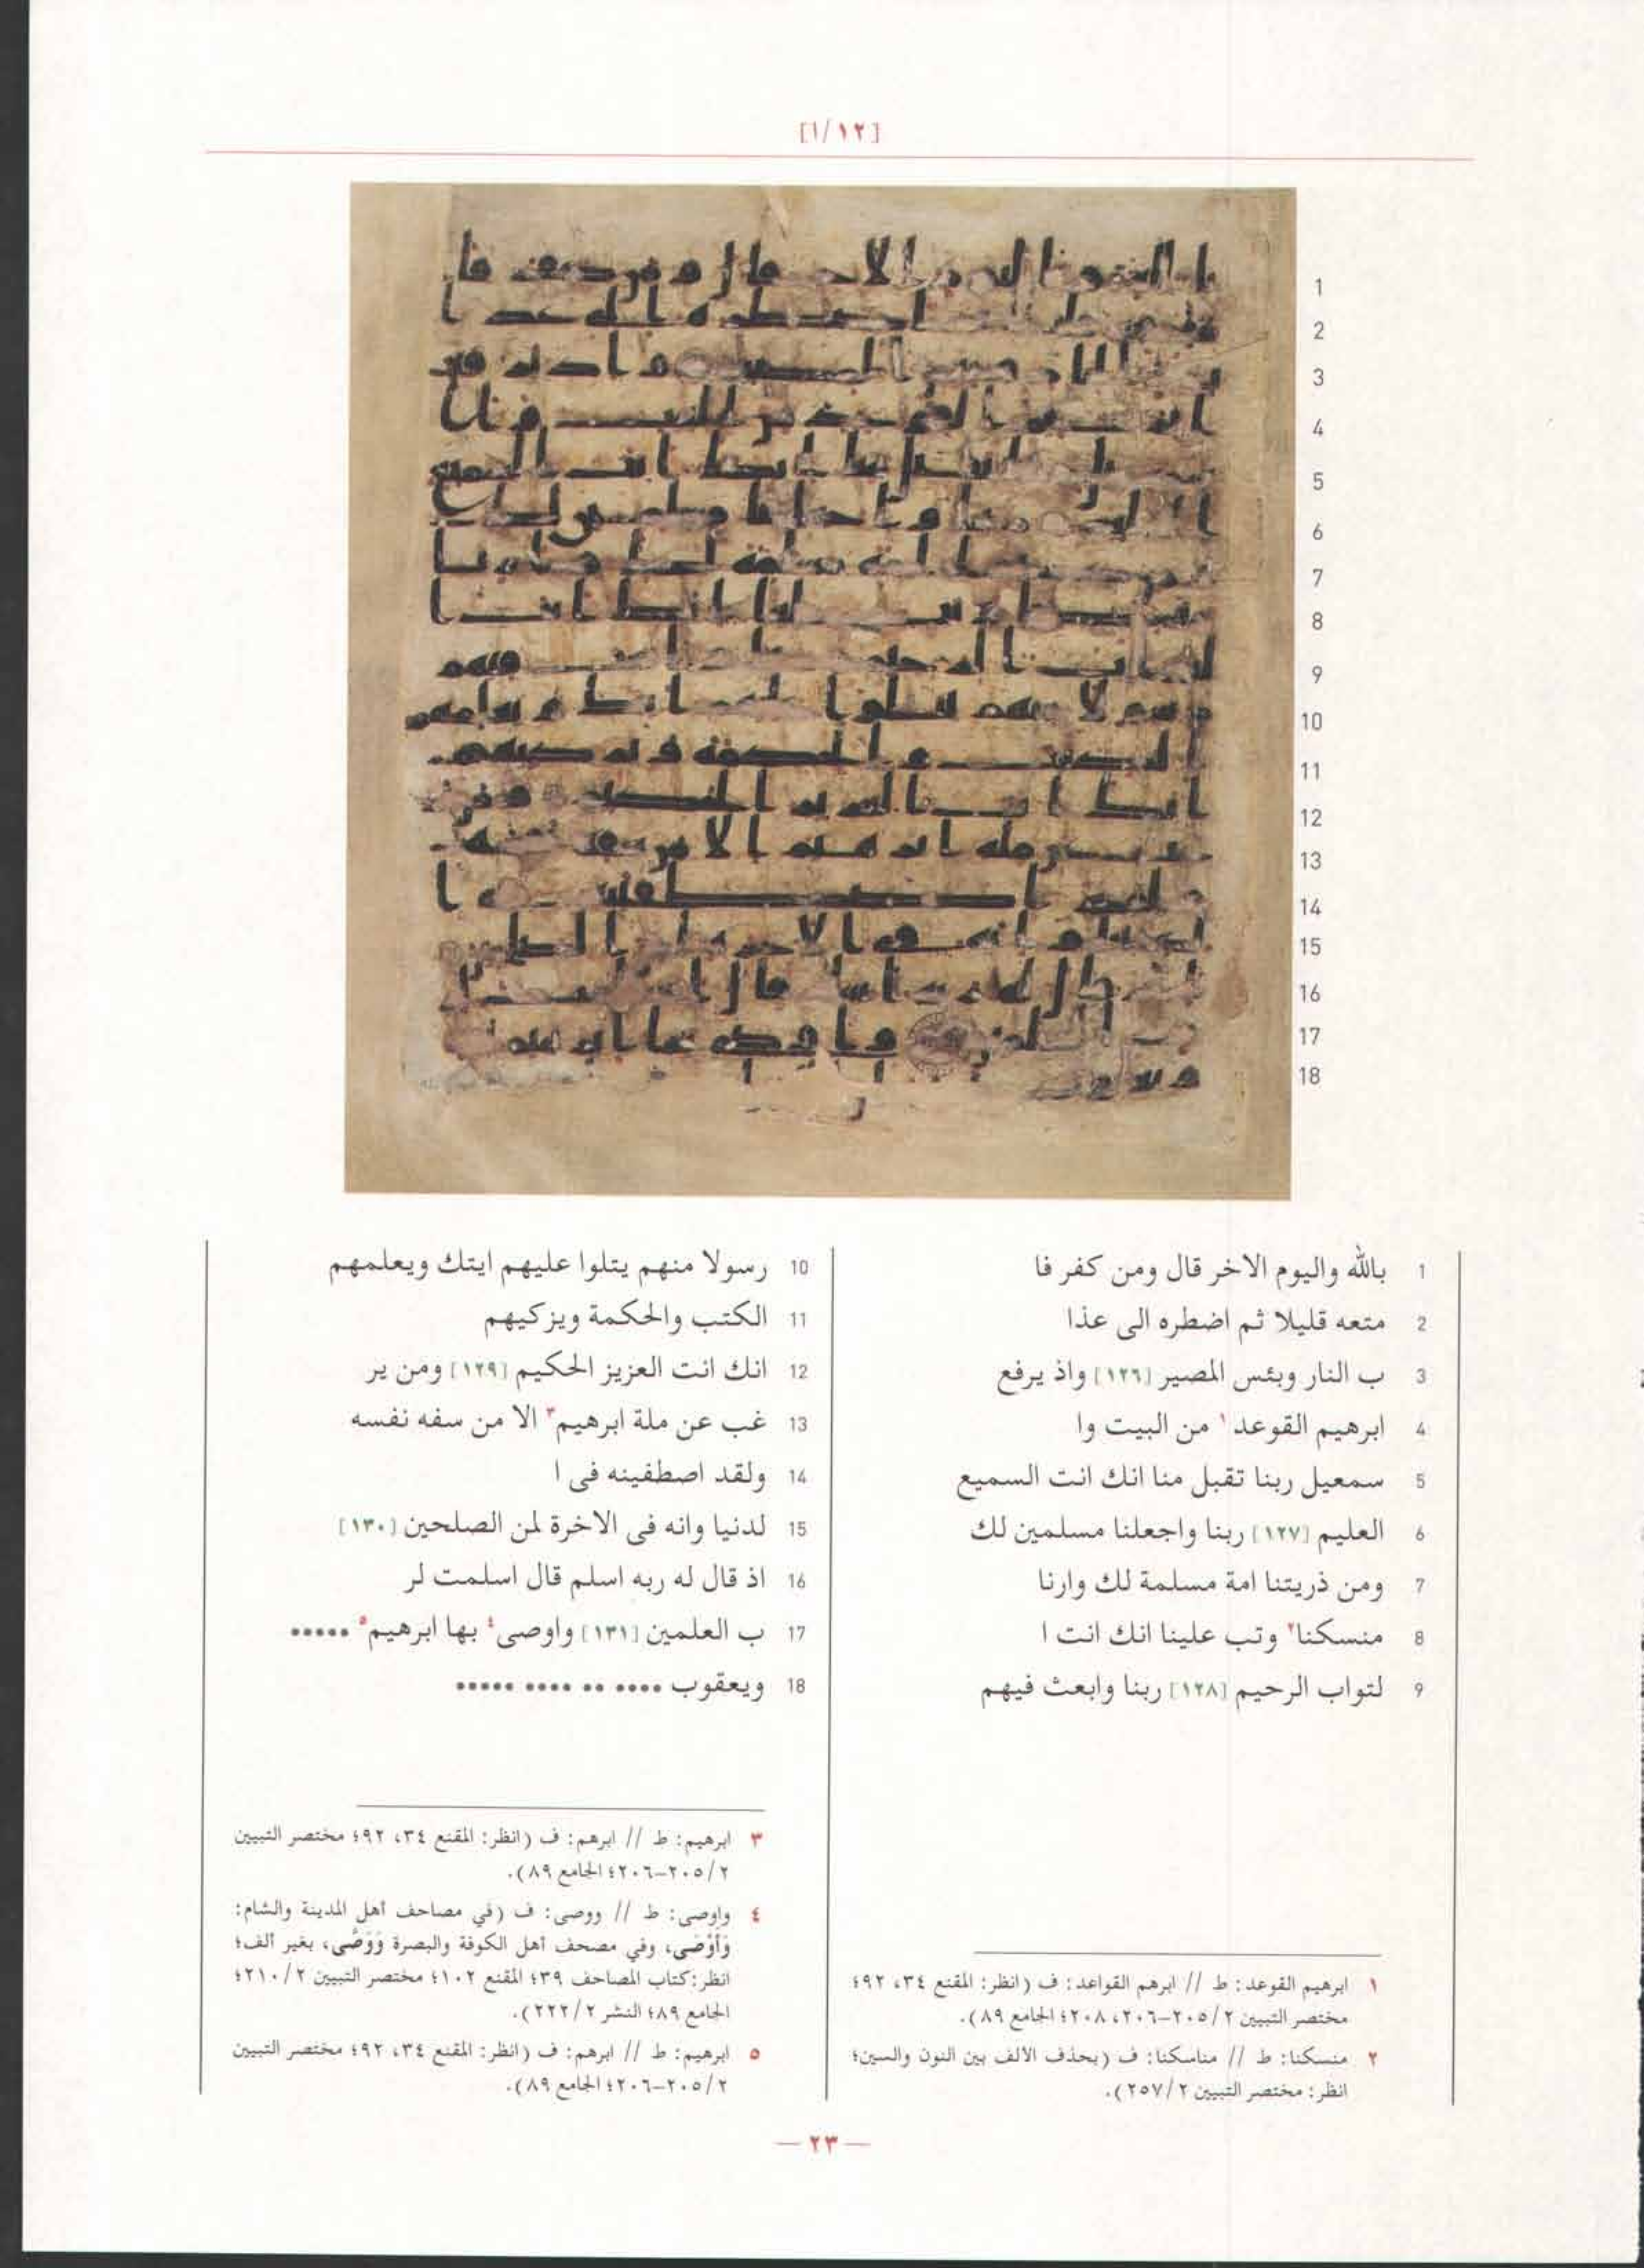 [١٢/أ]
1 بالله واليوم الاخر قال ومن كفر فا
2 متعه قليلا ثم اضطره الى عذا
3 ب النار وبئس المصير [١٢٦] واذ يرفع
4 ابرهيم القوعد١ من البيت وا
5 سمعيل ربنا تقبل منا انك انت السميع
6 العليم [١٢٧] ربنا واجعلنا مسلمين لك
7 ومن ذريتنا امة مسلمة لك وارنا
8 منسكنا٢ وتب علينا انك انت ا
9 لتواب الرحيم [١٢٨] ربنا وابعث فيهم
10 رسولا منهم يتلوا عليهم ايتك ويعلمهم
11 الكتب والحكمة ويزكيهم
12 انك انت العزيز الحكيم [١٢٩] ومن ير
13 غب عن ملة ابرهيم٣ الا من سفه نفسه
14 ولقد اصطفينه فى ا
15 لدنيا وانه فى الاخرة لمن الصلحين [١٣٠]
16 اذ قال له ربه اسلم قال اسلمت لر
17 ب العلمين [١٣١] واوصى٤ بها ابرهيم٥ •••••
18 ويعقوب •••• •• •••• •••••
١ ابرهيم القوعد: ط // ابرهم القواعد: ف (انظر: المقنع ٣٤، ٩٢؛
مختصر التبيين ٢/ ٢٠٥-٢٠٦، ٢٠٨؛ الجامع ٨٩).
٢ منسكنا: ط // مناسكنا: ف (بحذف الالف بين النون والسين؛
انظر: مختصر التبيين ٢/ ٢٥٧).
٣ ابرهيم: ط // ابرهم: ف (انظر: المقنع ٣٤، ٩٢؛ مختصر التبيين
٢/ ٢٠٥-٢٠٦؛ الجامع ٨٩).
٤ واوصى: ط // ووصى: ف (في مصاحف أهل المدينة والشام:
وَأَوْصَى، وفي مصحف أهل الكوفة والبصرة وَوَصَّى، بغير ألف؛
انظر: كتاب المصاحف ٣٩؛ المقنع ١٠٢؛ مختصر التبيين ٢/ ٢١٠؛
الجامع ٨٩؛ النشر ٢/ ٢٢٢).
٥ ابرهيم: ط // ابرهم: ف (انظر: المقنع ٣٤، ٩٢؛ مختصر التبيين
٢/ ٢٠٥-٢٠٦؛ الجامع ٨٩).
— ٢٣ —